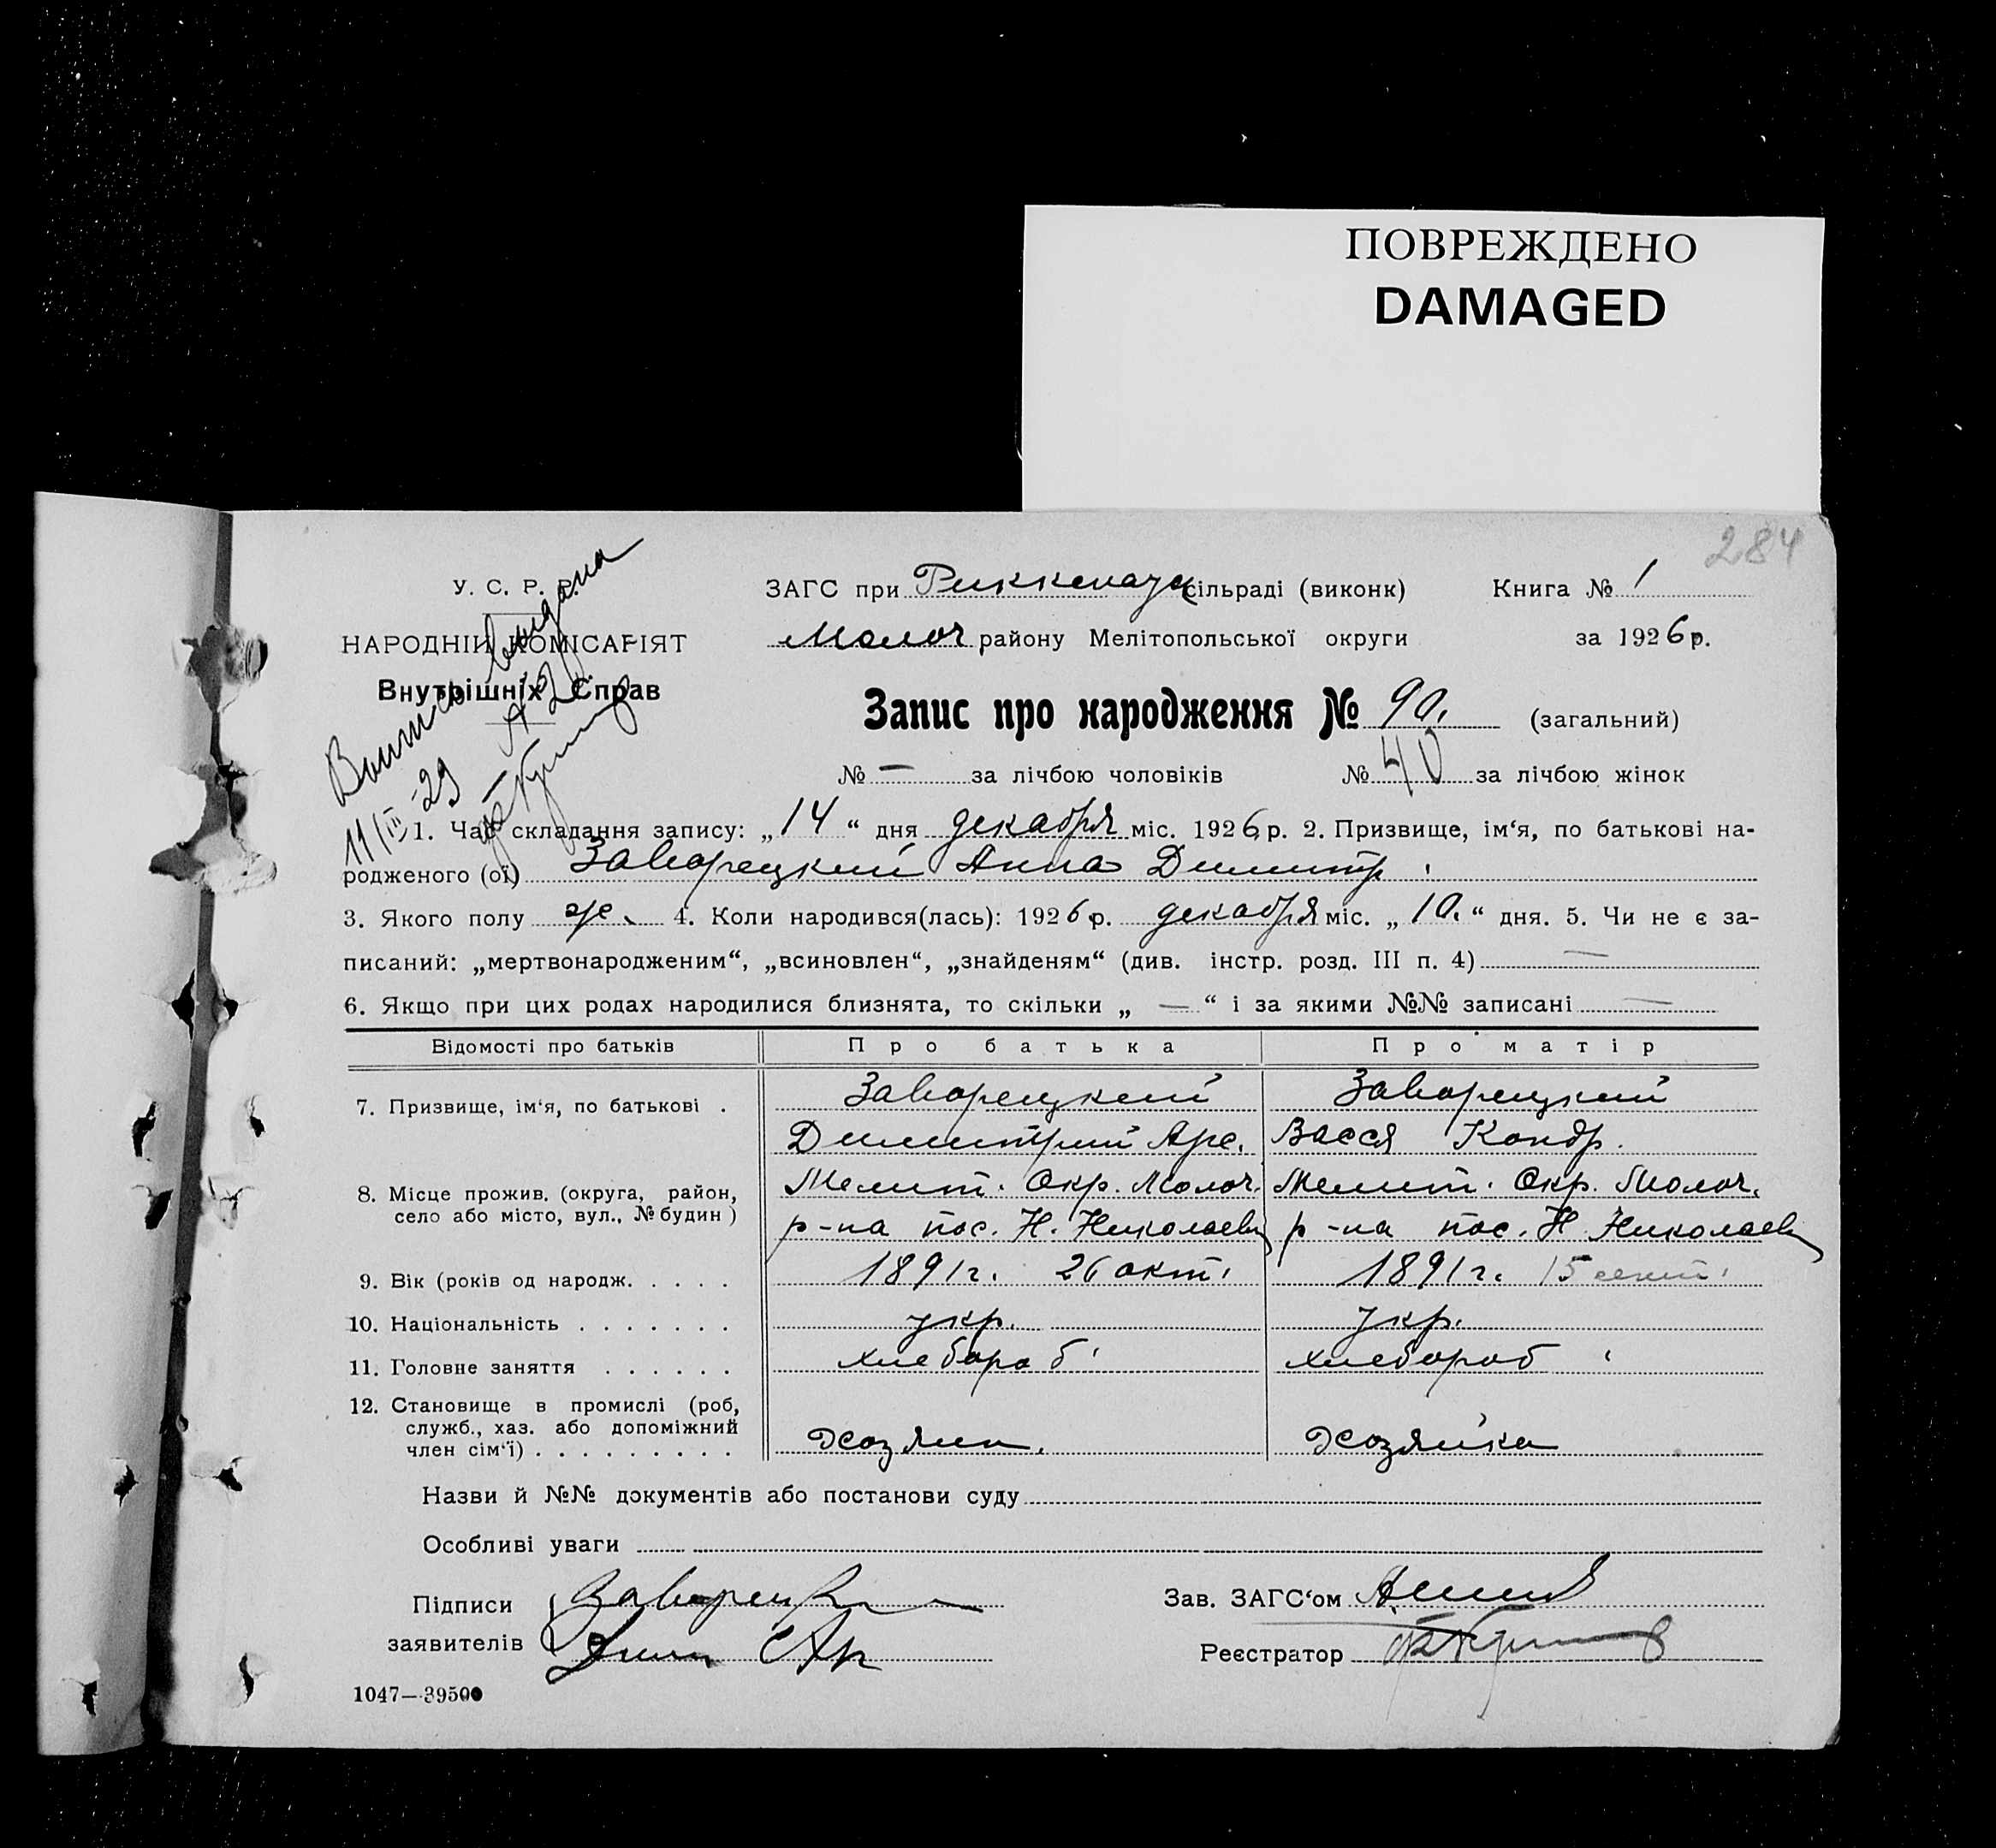 ПОВРЕЖДЕНО
DAMAGED
284
У. С. Р. Р.
НАРОДНІЙ КОМІСАРІЯТ
Внутрішніх Справ
Выпись выдана
11/III-29
ЗАГС при Риккенауск сільраді (виконк) Книга № 1
Молоч району Мелітопольської округи за 1926 р.
Запис про народження № 90. (загальний)
№ — за лічбою чоловіків № 40 за лічбою жінок
1. Час складання запису: „14“ дня декабря міс. 1926 р. 2. Призвище, ім‘я, по батькові на-
родженого (ої) Заворецкий Анна Димитр.
3. Якого полу ж. 4. Коли народився(лась): 1926 р. декабря міс. „10.“ дня. 5. Чи не є за-
писаний: „мертвонародженим“, „всиновлен“, „знайденям“ (див. інстр. розд. III п. 4) —
6. Якщо при цих родах народилися близнята, то скільки „ — “ і за якими №№ записані —
Відомості про батьків Про батька Про матір
7. Призвище, ім‘я, по батькові . Заворецкий Заворецкий
Димитрий Арс. Васся Кондр.
8. Місце прожив. (округа, район, село або місто, вул., № будин) Мелит. Окр. Молоч. Мелит. Окр. Молоч.
р-на пос. Н. Николаевк р-на пос. Н. Николаевк
9. Вік (років од народж. . . . . 1891 г. 26 окт. 1891 г. 15 сент.
10. Національність . . . . . . . укр. укр.
11. Головне заняття . . . . . . хлебороб хлебороб
12. Становище в промислі (роб,
служб., хаз. або допоміжний
член сім‘ї) . . . . . . . . . хозяин. хозяйка
Назви й №№ документів або постанови суду
Особливі уваги
Підписи Заворецк Зав. ЗАГС‘ом
заявителів Дим Ар
Реєстратор
1047—39500